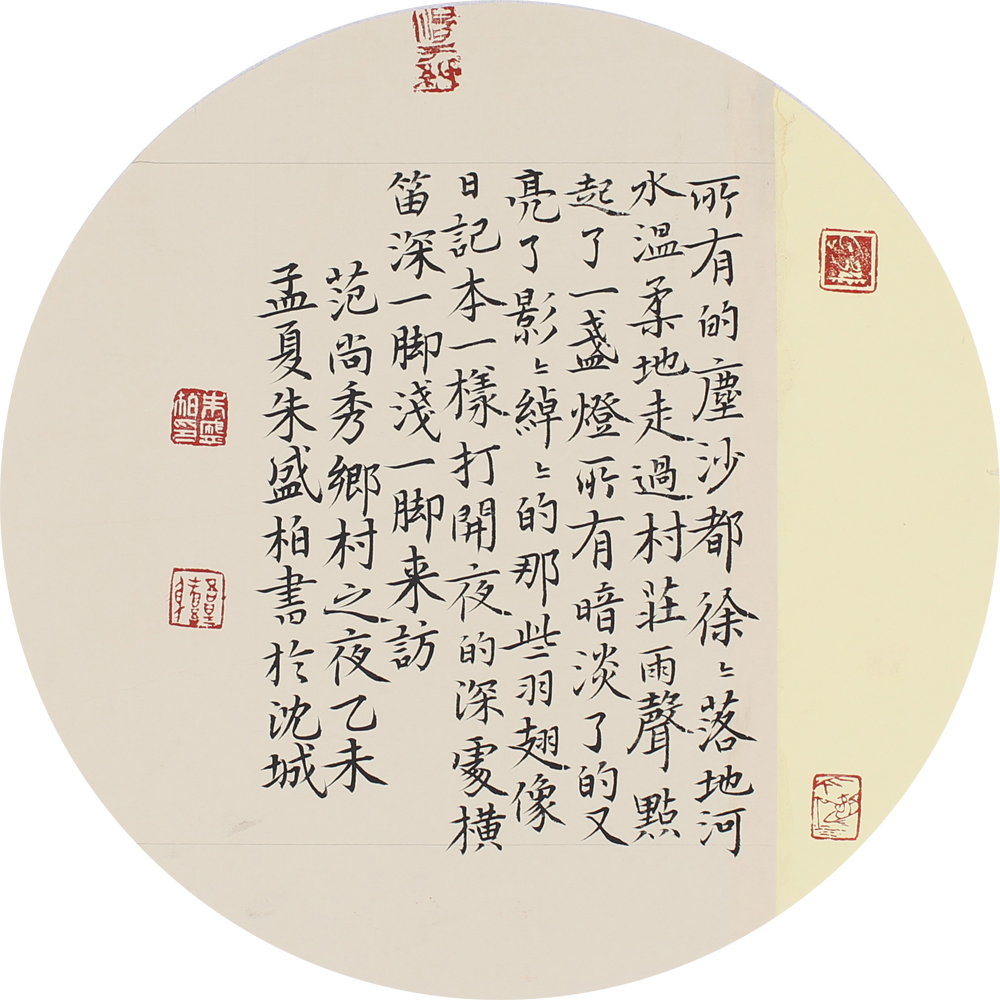 所有的塵沙都徐〻落地河
水温柔地走過村莊雨聲點
起了一盞燈所有暗淡了的又
亮了影〻綽〻的那些羽翅像
日記本一樣打開夜的深處橫
笛深一脚淺一脚来訪
范尚秀鄉村之夜乙未
孟夏朱盛柏書於沈城